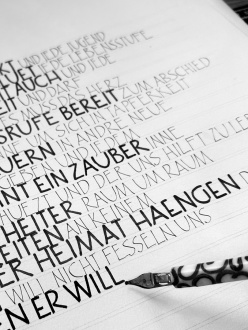 KT UND JEDE JUGEND
JEDE LEBENSSTUFE
T AUCH UND JEDE
UND DARF
HERZ
SRUFE BEREIT ZUM ABSCHIED
SICH IN TAPFERKEIT
UERN IN ANDRE NEUE
EBEN
NT EIN ZAUBER INNE
HUETZT UND DER UNS HILFT ZU LEB
HEITER RAUM UM RAUM
EITEN AN KEINEM
ER HEIMAT HAENGEN D
WILL NICHT FESSELN UNS
EN ER WILL